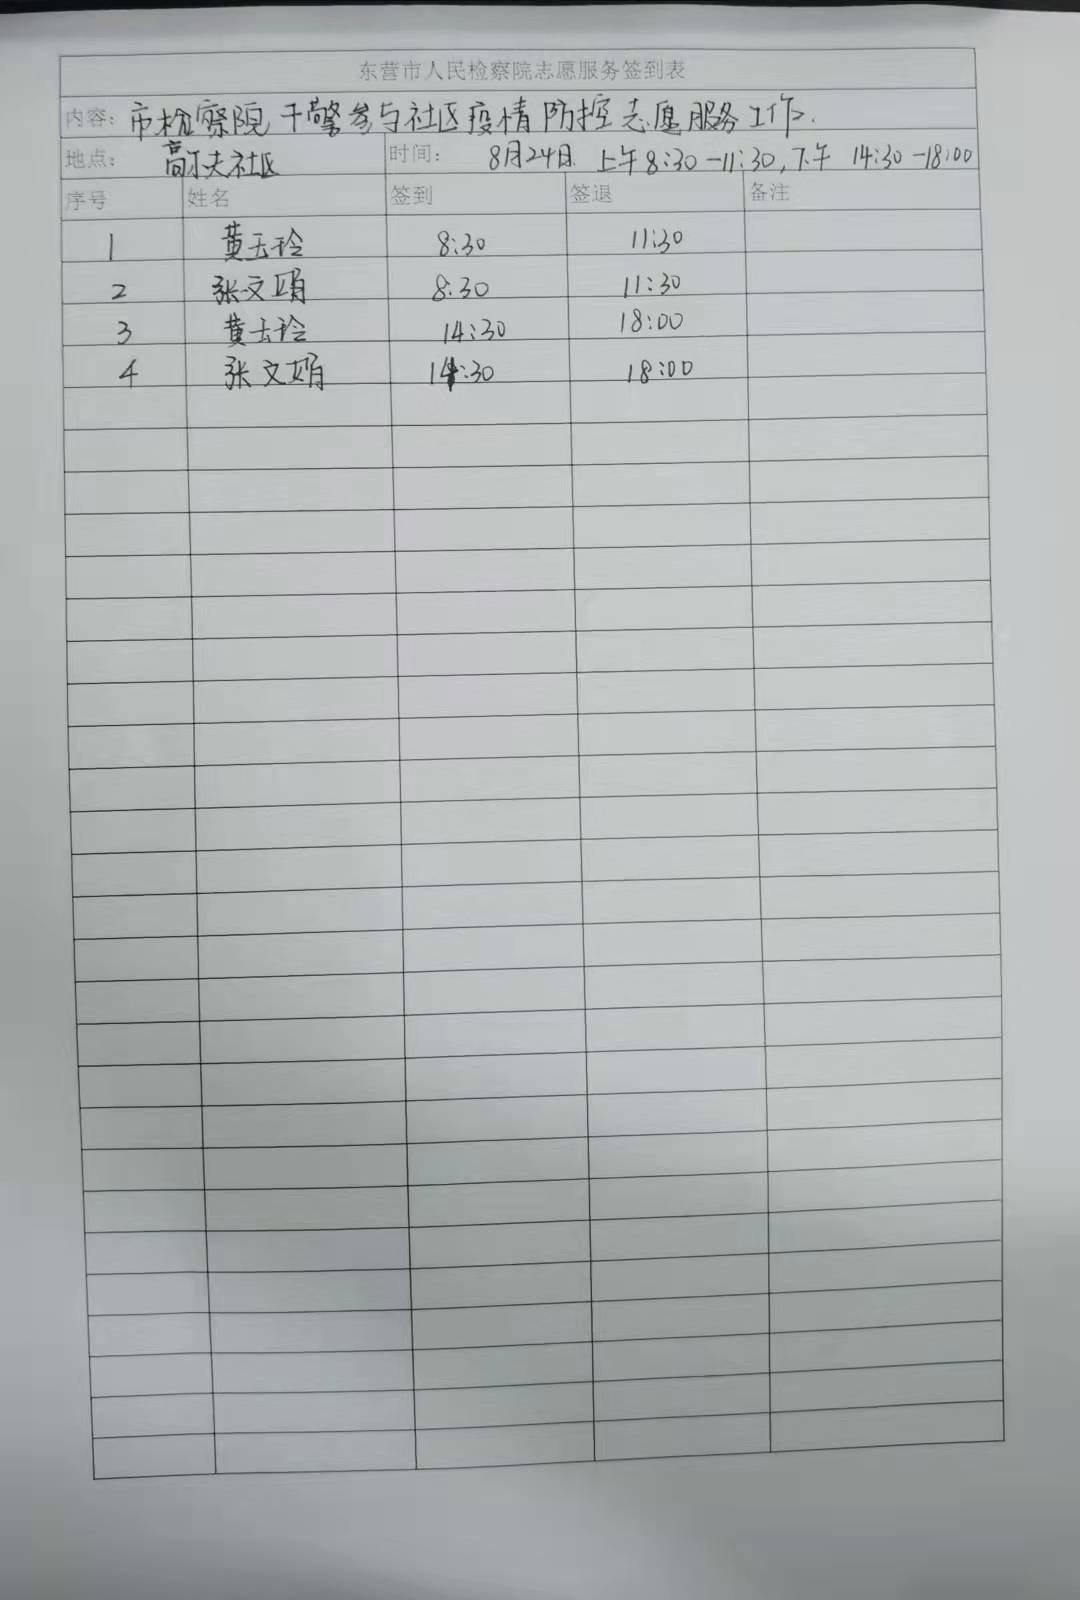 东营市人民检察院志愿服务签到表
内容：市检察院干警参与社区疫情防控志愿服务工作.
地点： 高尔夫社区 时间： 8月24日 上午8:30-11:30,下午 14:30-18:00
序号 姓名 签到 签退 备注
1 黄玉玲 8:30 11:30
2 张文娟 8:30 11:30
3 黄玉玲 14:30 18:00
4 张文娟 14:30 18:00